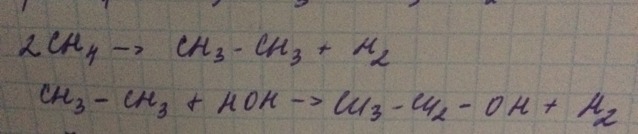 2CH₄ -> CH₃ - CH₃ + H₂
CH₃ - CH₃ + HOH -> CH₃ - CH₂ - OH + H₂